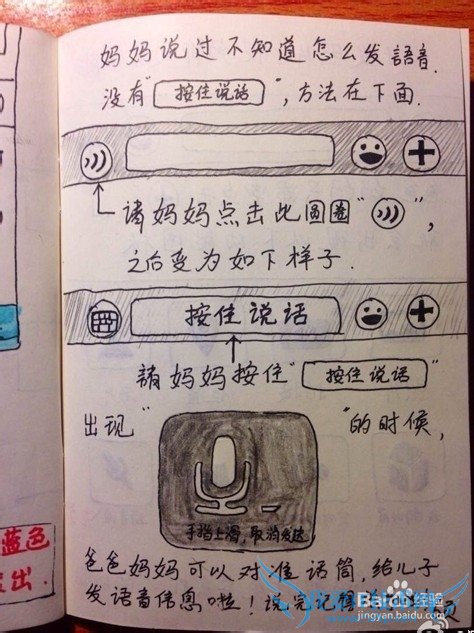 妈妈说过不知道怎么发語音.
没有"按住说话",方法在下面.
请妈妈点击此圆圈" ",
之后变为如下样子.
按住说话
請妈妈按住"按住说话"
出现" "的时候,
手指上滑,取消发送
爸爸妈妈可以对准话筒,给儿子
发语音信息啦!说完记得
蓝色
出.
Baidu 经验
jingyan.baidu.com